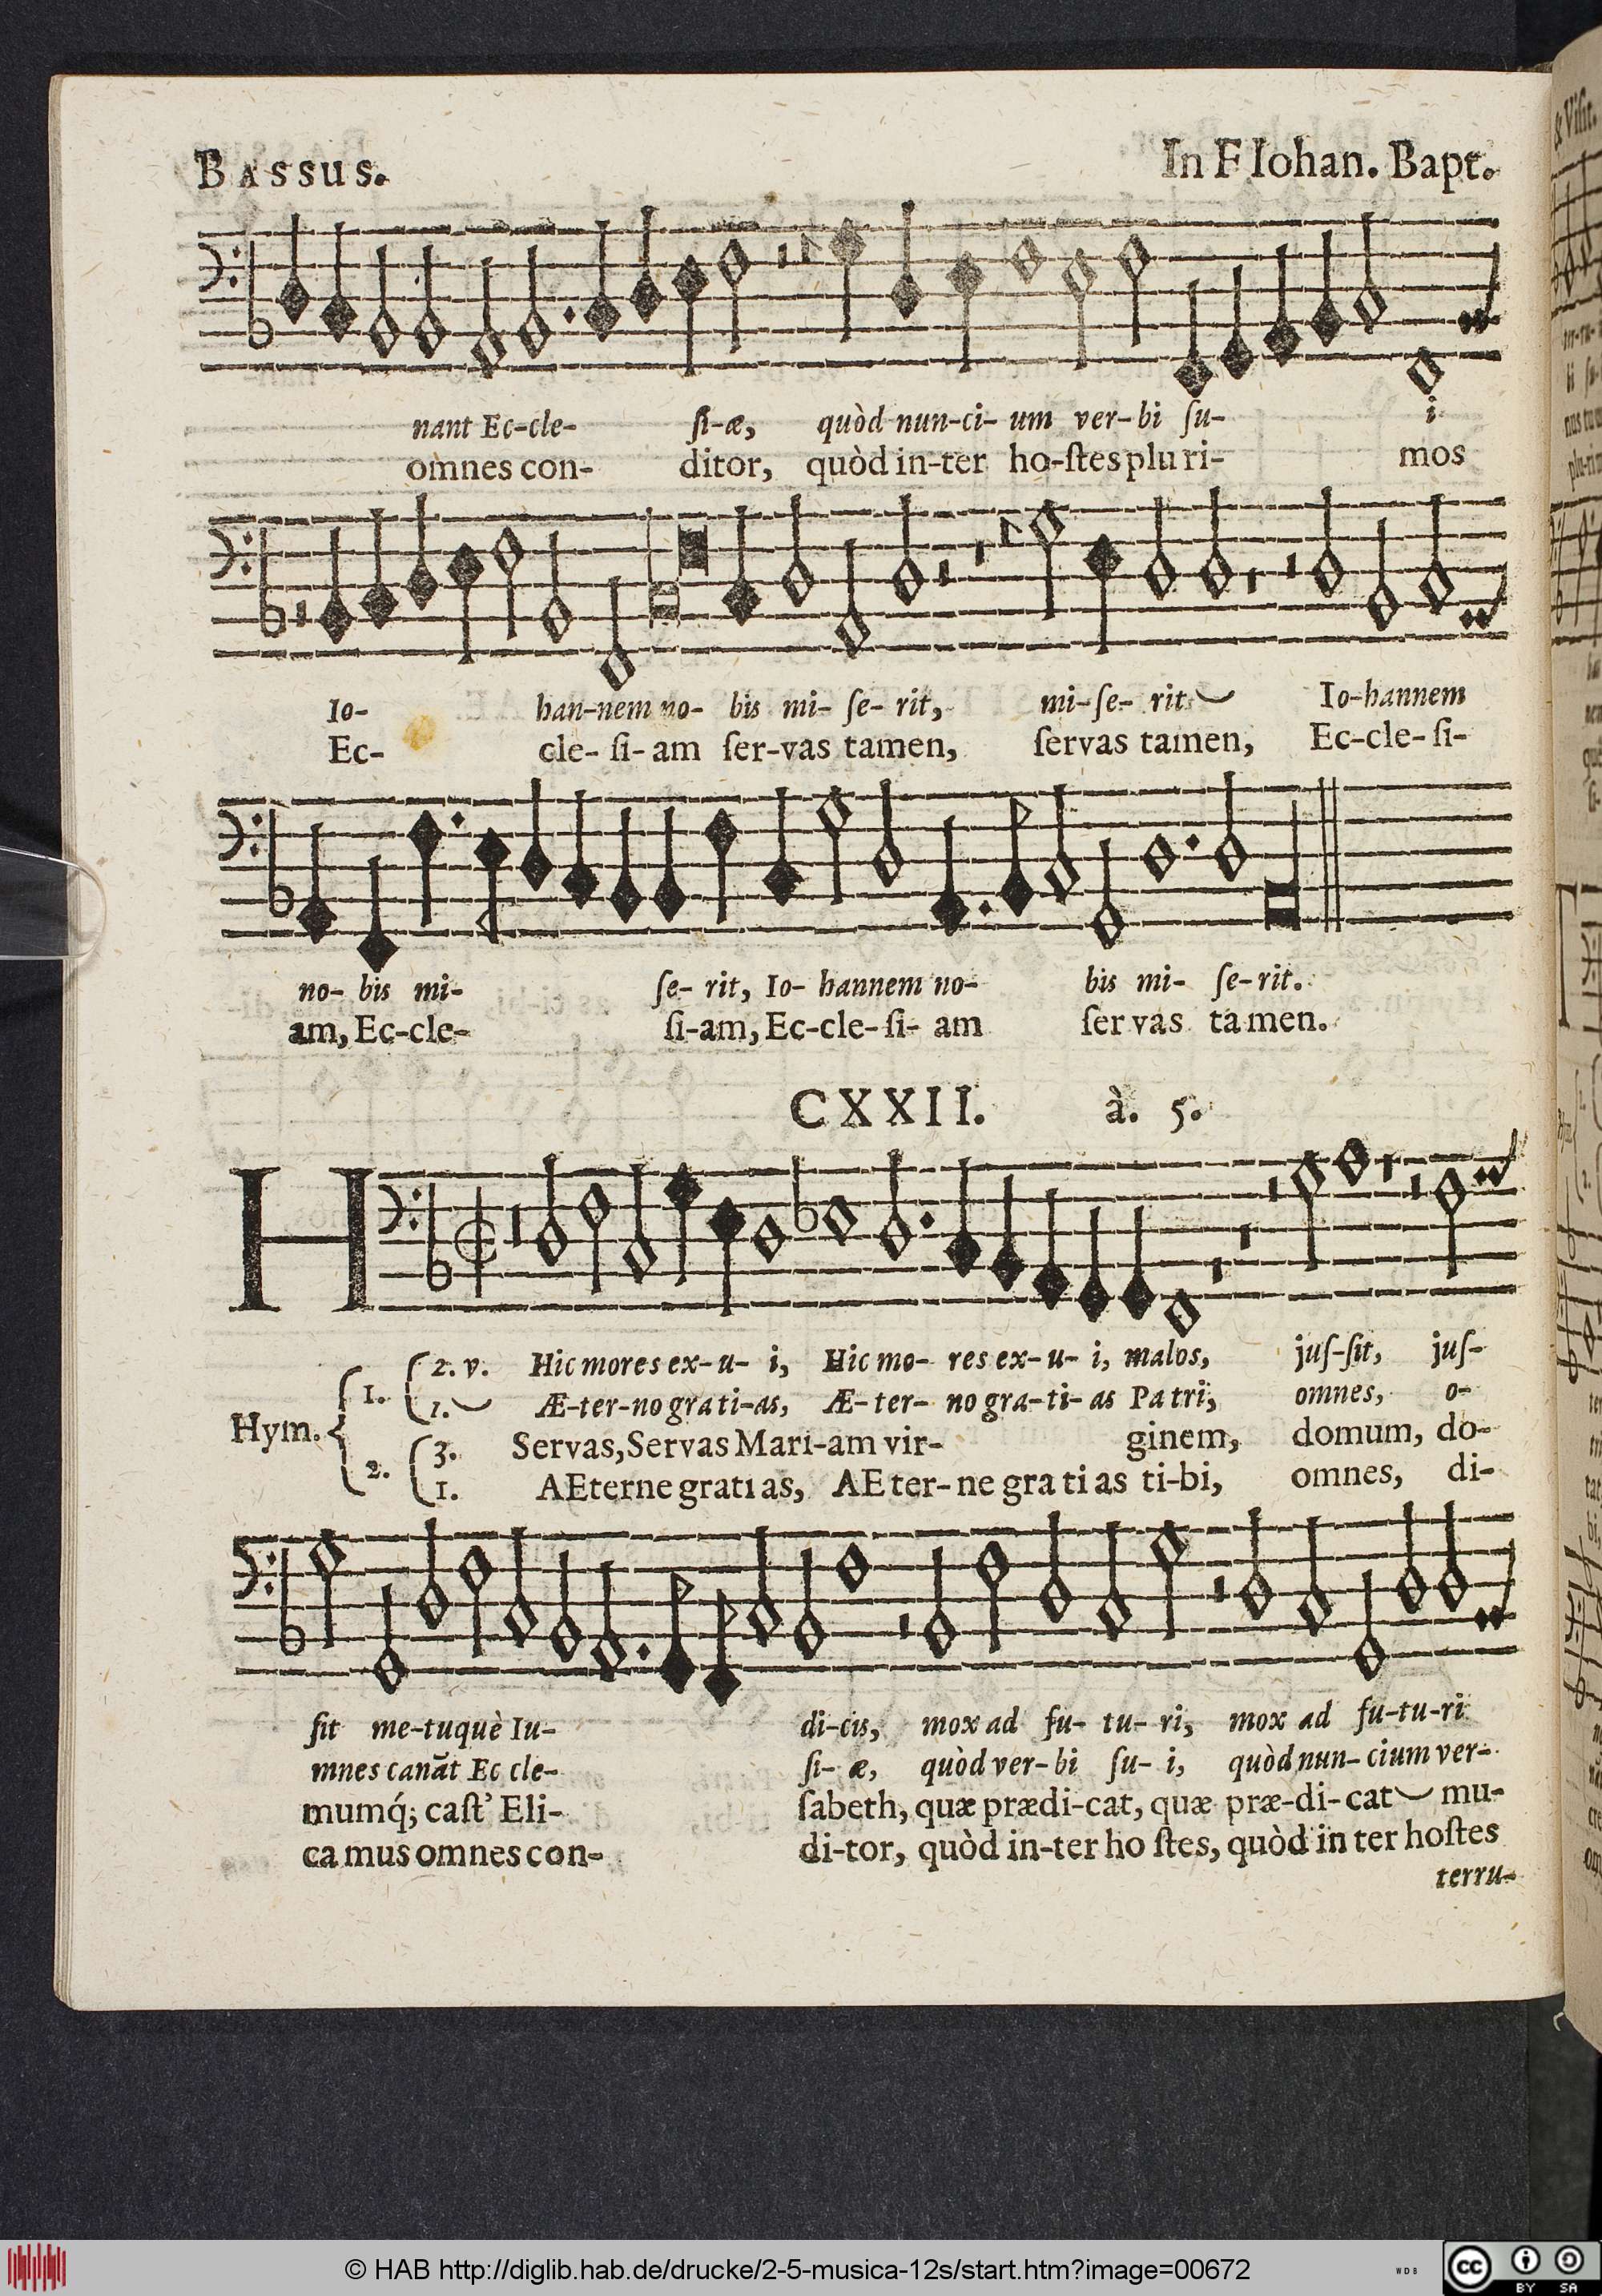 BASSUS. In F Iohan. Bapt.
nant Ec-cle- ſi-æ, quòd nun-ci- um ver-bi ſu- i
omnes con- ditor, quòd in-ter ho-ſtes plu ri- mos
Io- han-nem no- bis mi- ſe- rit, mi-ſe- rit Io-hannem
Ec- cle- ſi- am ſer-vas tamen, ſervas tamen, Ec-cle- ſi-
no- bis mi- ſe- rit, Io- hannem no- bis mi- ſe-rit.
am, Ec-cle- ſi-am, Ec-cle- ſi- am ſer vas ta men.
CXXII. à. 5.
H
1. 2. v. Hic mores ex- u- i, Hic mo- res ex- u- i, malos, juſ-ſit, juſ-
1. Æ-ter-no gra ti-as, Æ- ter- no gra-ti- as Pa tri, omnes, o-
Hym.
2. 3. Servas, Servas Mari-am vir- ginem, domum, do-
1. AEterne grati as, AE ter- ne gra ti as ti-bi, omnes, di-
ſit me-tuquè Iu- di-cis, mox ad fu- tu- ri, mox ad fu-tu-ri
mnes canāt Ec cle- ſi- æ, quòd ver-bi ſu- i, quòd nun- cium ver-
mumq́; caſt' Eli- ſabeth, quæ prædi-cat, quæ præ-di- cat mu-
ca mus omnes con- di-tor, quòd in-ter ho ſtes, quòd in ter hoſtes
terru-
© HAB http://diglib.hab.de/drucke/2-5-musica-12s/start.htm?image=00672
WDB
cc BY SA